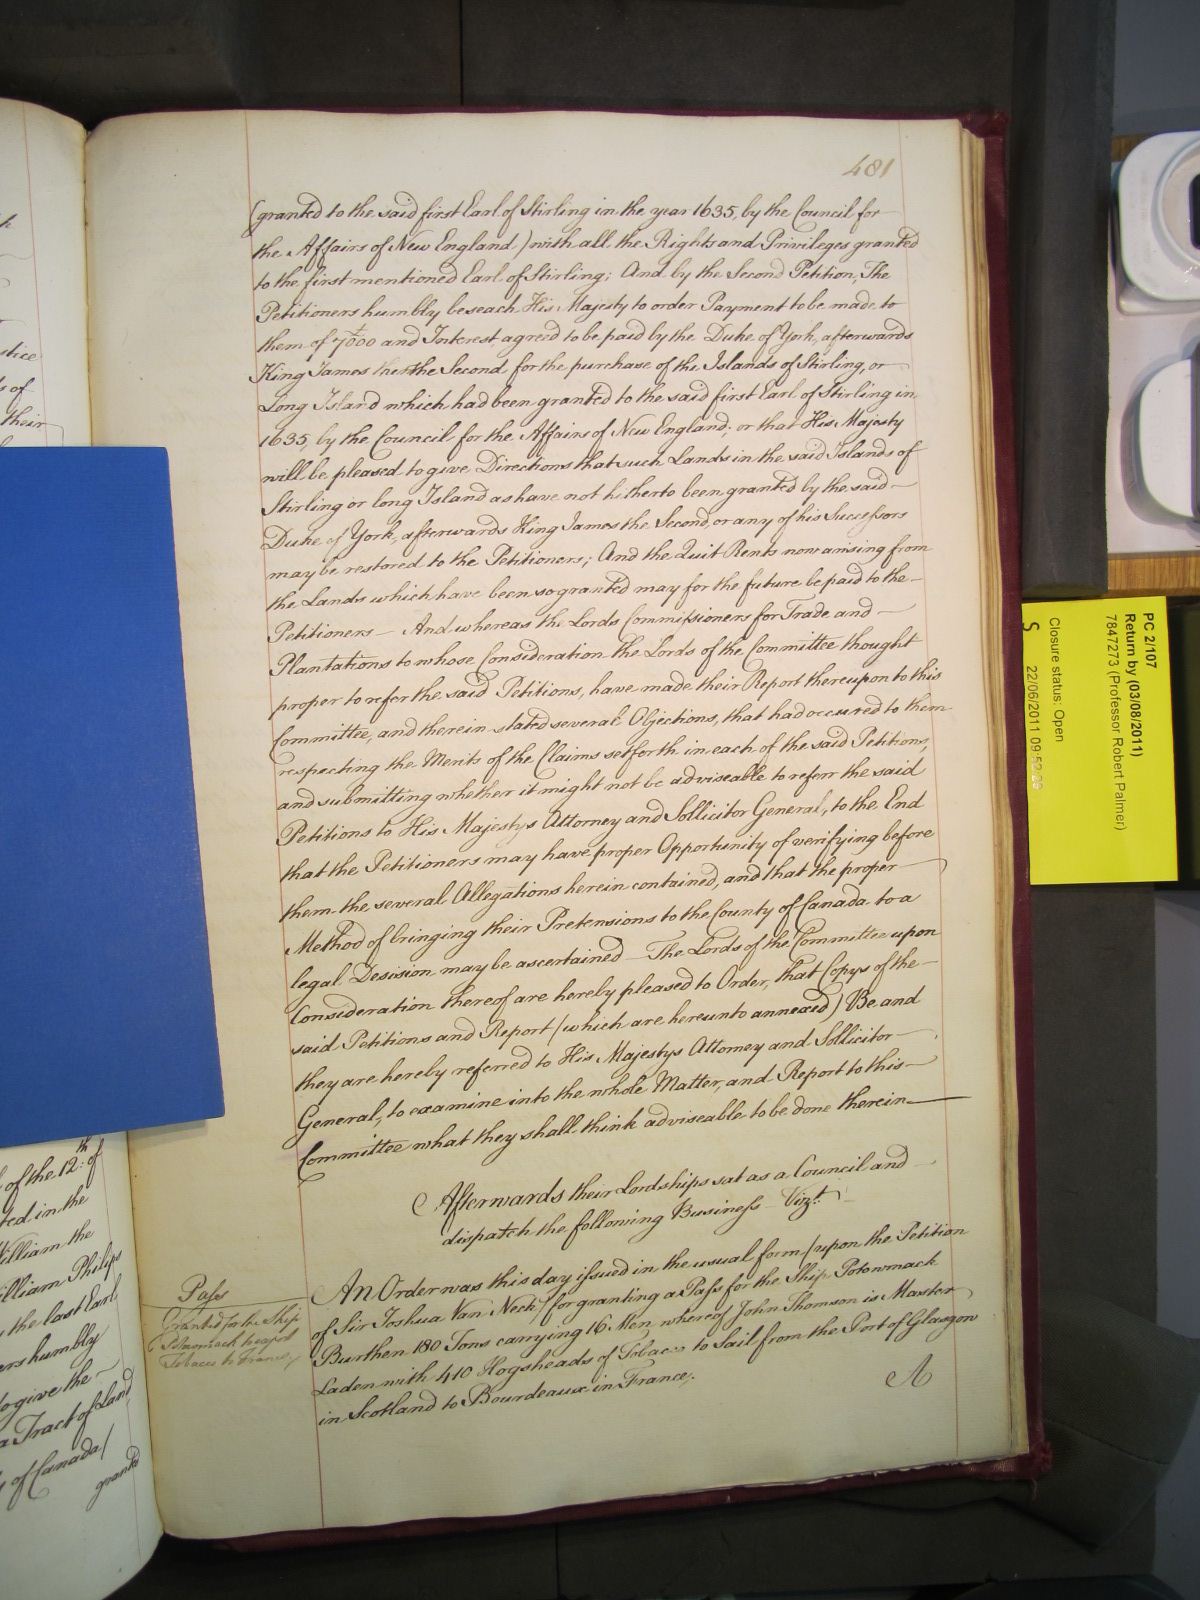 481
(granted to the said first Earl of Stirling in the year 1635, by the Council for
the Affairs of New England) with all the Rights and Privileges granted
to the first mentioned Earl of Stirling; And by the Second Petition, The
Petitioners humbly beseach His Majesty to order Payment to be made to
them of 7000 and Interest agreed to be paid by the Duke of York, afterwards
King James the Second for the purchase of the Islands of Stirling, or
Long Island which had been granted to the said first Earl of Stirling in
1635, by the Council for the Affairs of New England; or that His Majesty
will be pleased to give Directions that such Lands in the said Islands of
Stirling or long Island as have not hitherto been granted by the said
Duke of York, afterwards King James the Second, or any of his Successors
may be restored to the Petitioners; And the Quit Rents now arising from
the Lands which have been so granted may for the future be paid to the
Petitioners — And whereas the Lords Commissioners for Trade and
Plantations to whose Consideration the Lords of the Committee thought
proper to refer the said Petitions, have made their Report thereupon to this
Committee, and therein stated several Objections, that had occured to them
respecting the Merits of the Claims setforth in each of the said Petitions,
and submitting whether it might not be adviseable to referr the said
Petitions to His Majestys Attorney and Sollicitor General, to the End
that the Petitioners may have proper Opportunity of verifying before
them the several Allegations herein contained, and that the proper
Method of bringing their Pretensions to the County of Canada to a
legal Desision may be ascertained — The Lords of the Committee upon
Consideration thereof are hereby pleased to Order, that Copys of the
said Petitions and Report (which are hereunto annexed) Be and
they are hereby referred to His Majestys Attorney and Sollicitor
General, to examine into the whole Matter, and Report to this
Committee what they shall think adviseable to be done therein
Afterwards their Lordships sat as a Council and
dispatch the following Business Vizt.
Pass
Granted for the Ship
Tobacco to France
An Order was this day issued in the usual form (upon the Petition
of Sir Joshua Van Neck) for granting a Pass for the Ship Potowmack
Burthen 180 Tons carrying 16 Men whereof John Thomson is Master
Laden with 410 Hogsheads of Tobacco to Sail from the Port of Glasgow
in Scotland to Bourdeaux in France.
A
stice
s of
their
of the 12th of
ted in the
William the
William Philips
the last Earl
ers humbly
to give the
a Tract of Land
of Canada/
granted
PC 2/107
Return by (03/08/2011)
7847273 (Professor Robert Palmer)
Closure status: Open
S 22/06/2011 09:52:26